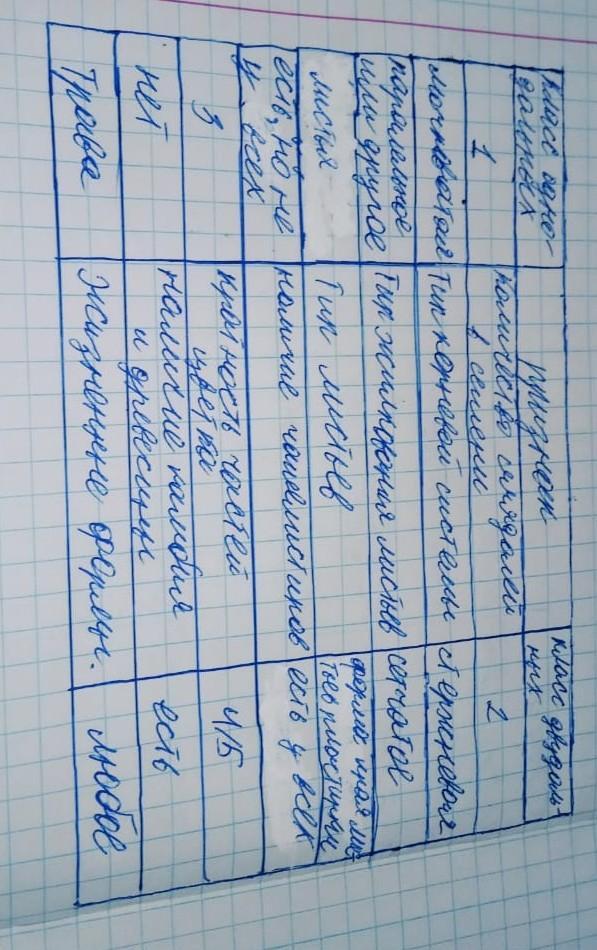 класс одно-
дольных
признак
класс двудоль-
ных
1
количество семядолей
в семени
2
мочковатая
Тип корневой системы
стержневая
параллельное
или другое
Тип жилкования листьев
сетчатое
листья
Тип листьев
форма края лис-
тьев пластинки
есть, но не
у всех
наличие чашелистиков
есть у всех
3
кратность частей
цветка
4/5
нет
наличие камбия
и древесины
есть
Трава
Жизненные формы.
любое